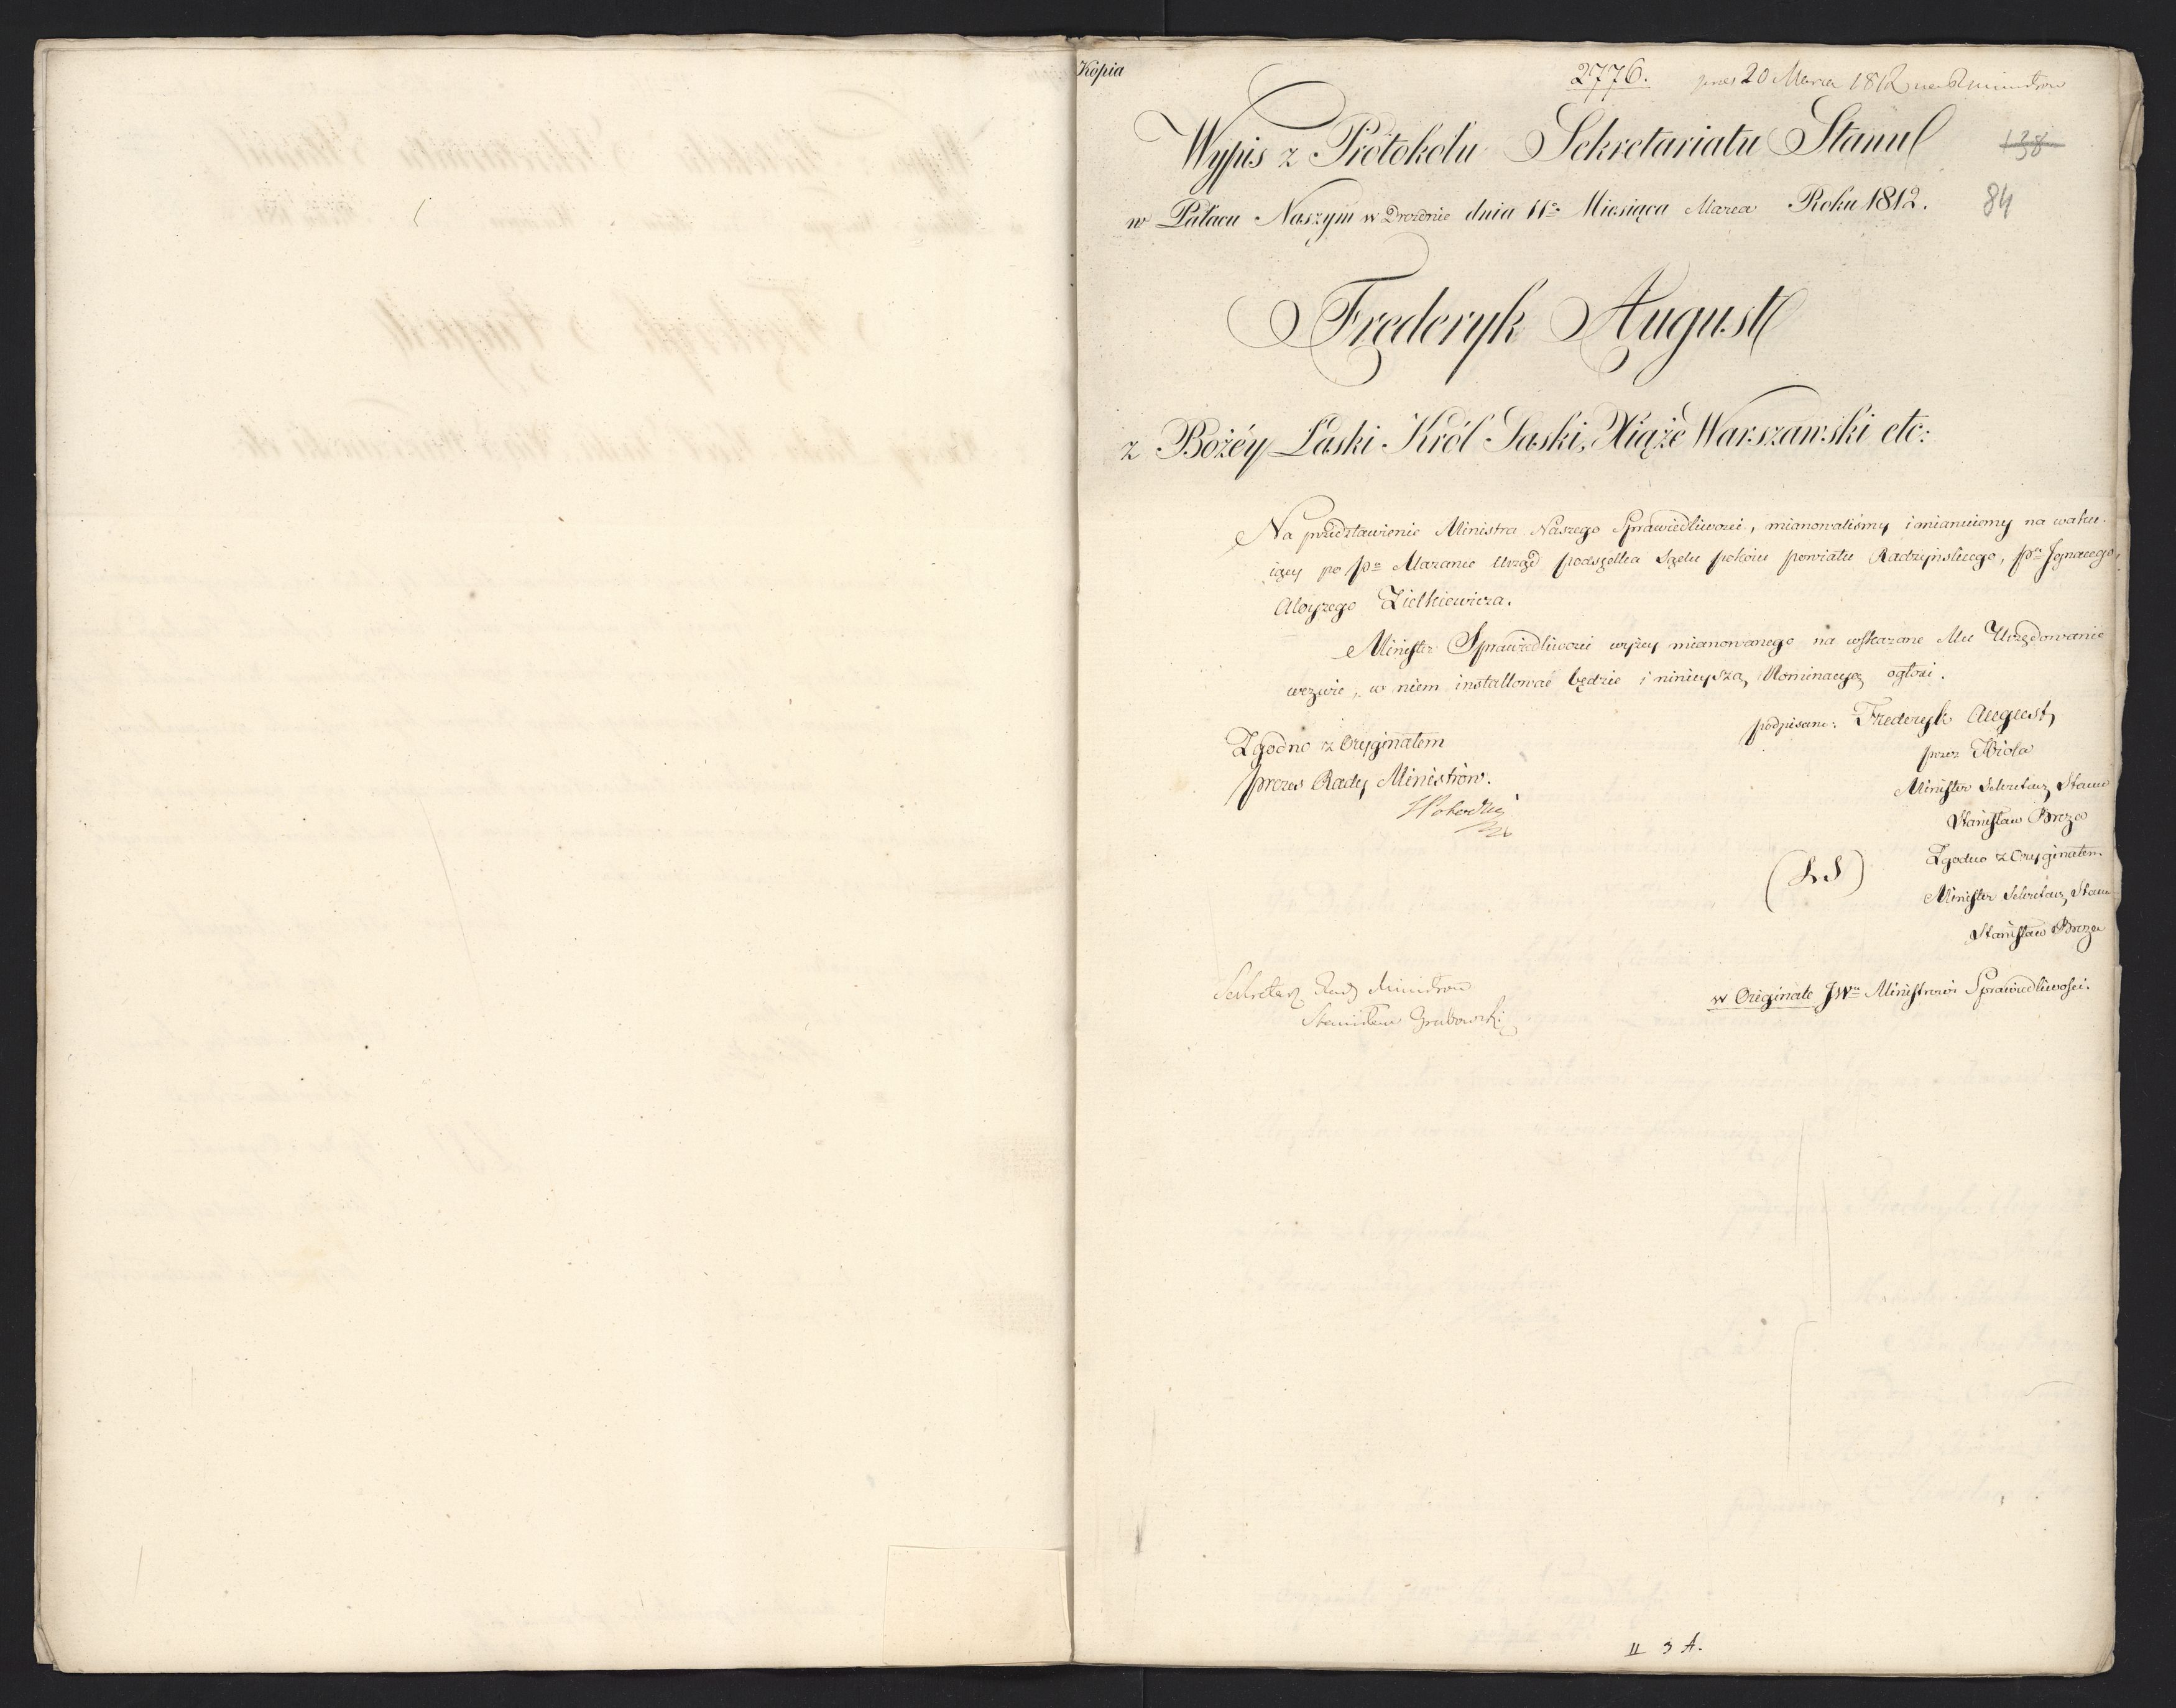 Kopia
2776. 20 Marca 1812
Wypis z Protokołu Sekretariatu Stanu
138
w Pałacu Naszym w Dreźnie dnia 11º Miesiąca Marca Roku 1812.
84
Frederyk August
z Bożéy Łaski Król Saski, Xiąże Warszawski etc:
Na przedstawienie Ministra Naszego Sprawiedliwości, mianowaliśmy i mianuiemy na waku-
iący po Pº Urząd podsędka Sądu pokoiu powiatu Radzyńskiego, Pª Ignacego
Aloyzego Ziółkiewicza.
Minister Sprawiedliwości wyżey mianowanego na wskazane Mu Urzędowanie
wezwie, w niem installować będzie i ninieyszą Nominacyą ogłosi.
podpisano: Frederyk August,
Zgodno z Oryginałem
przez Króla
prezes Rady Ministrów.
Minister Sekretarz Stanu
Stanisław Breza
Zgodno z Oryginałem
(LS)
Minister Sekretarz Stanu
Stanisław Breza
Sekretarz Rady Ministrów
w Originale JWu Ministrowi Sprawiedliwości.
Stanisław Grabowski
II 3 A.